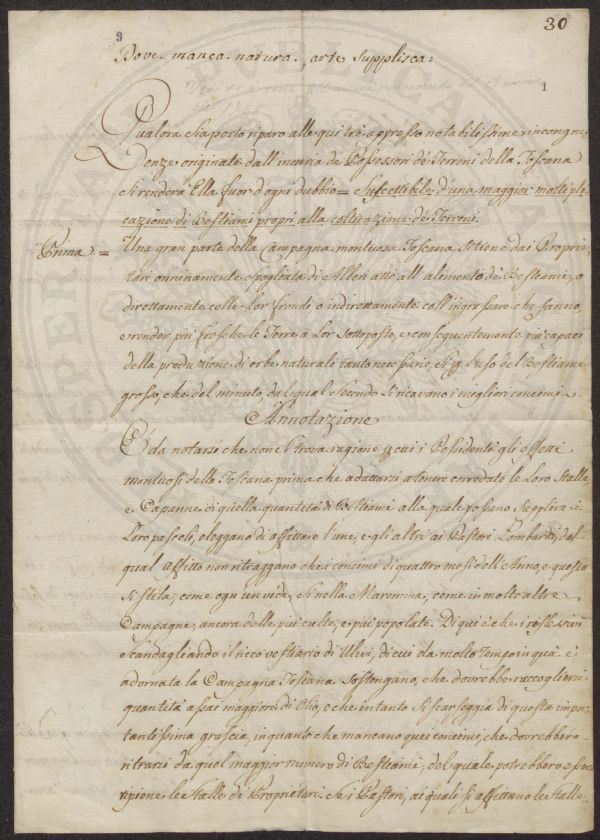 30
9
Dove manca natura, arte supplisca:
1
Qualora sia posto riparo alle qui trè appresso notabilissime incongruen
denze originate dall'incuria de Possessori de Terreni della Toscana
si renderà Ella fuor d'ogni dubbio = suscettibile d'una maggior moltipli
cazione di Bestiami propri alla coltivazione de Terreni.
Prima = Una gran parte della Campagna montuosa Toscana si tiene dai Proprie
tari onninamente spogliata di Alberi atti all'alimento de Bestiami, o
direttamente colle Lor frondi, o indirettamente coll'ingrassare che fanno,
e render più fresche le Terre a Lor sottoposte, e conseguentemente più capaci
della produzione di erbe naturali tanto necessarie, sì p l'uso del Bestiame
grosso, che del minuto, dal qual secondo si ricavano i migliori concimi.
Annotazione
E' da notarsi che non si trova ragione p cui i Possidenti gli effetti
montuosi della Toscana prima che adattarsi a tenere corredate le Loro Stalle,
e Capanne di quella quantità di Bestiami alla quale possano supplire i
Loro pascoli, eleggano di affittare l'une, e gli altri ai Pastori Lombardi, dal
qual affitto non ritraggano che i concimi di quattro mesi dell'Anno, e questo
si stila, come ogn'un vede, sì nella Maremma, come in molto altre
Campagne, ancora delle più culte, e più popolate. Di qui è che i riflessivi
scandagliando il ricco vestiario di Ulivi, di cui da molto tempo in quà è
adornata la Campagna Toscana sostengano, che dovrebbe raccogliersi
quantità assai maggiore di Olio, e che in tanto si scarseggia di questa impor
tantissima grascia, in quanto che mancano quei concimi, che dovrebbero
ritrarsi da quel maggior numero di Bestiami, del quale potrebbero esser
ripiene le stalle de Proprietari. Se i Pastori, ai quali si affittano le stalle